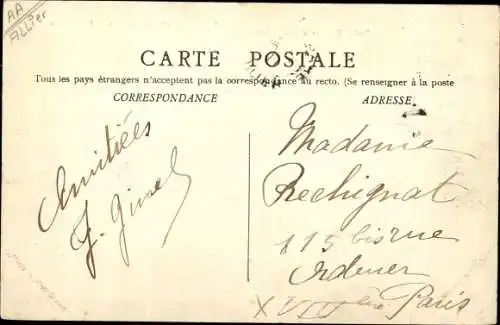 AA
Allier
CARTE POSTALE
Tous les pays étrangers n'acceptent pas la correspondance au recto. (Se renseigner à la poste
CORRESPONDANCE
ADRESSE
Amitiées
Madame
Rechignat
115 bis rue
Ordener
XVIII ème Paris